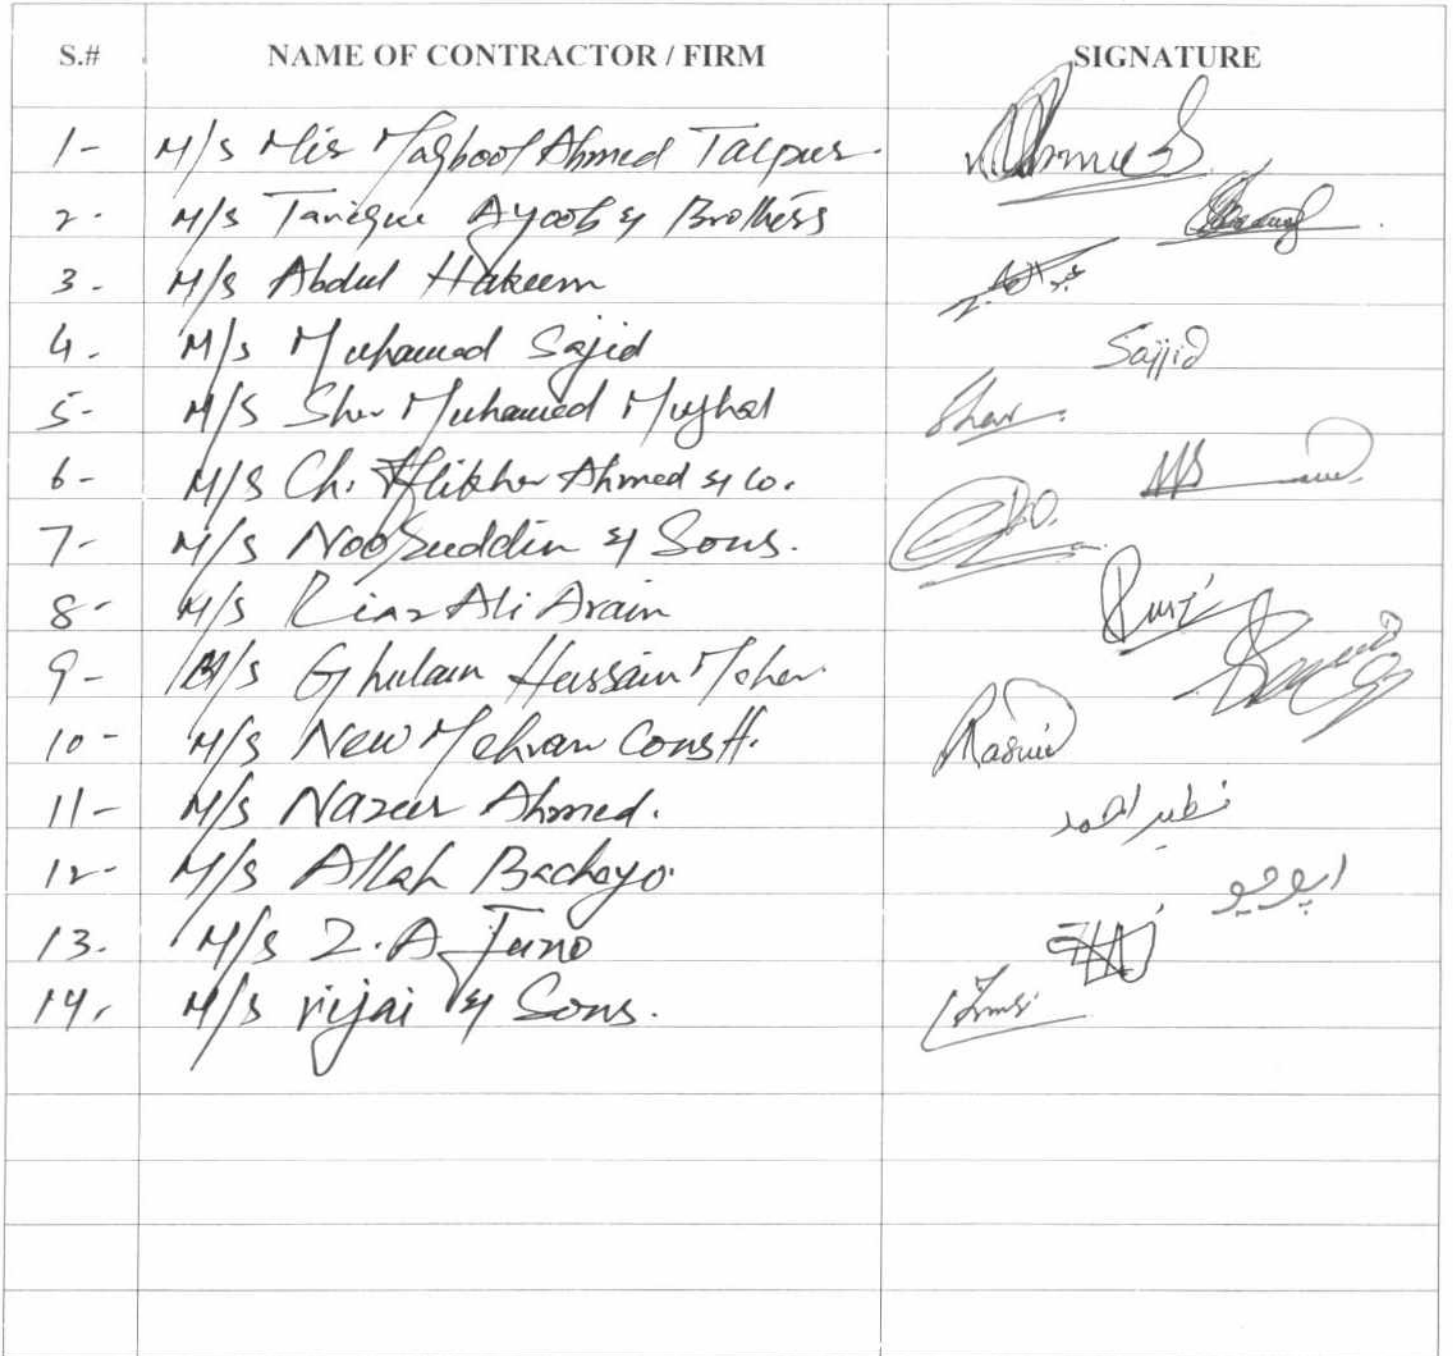 S.# NAME OF CONTRACTOR / FIRM SIGNATURE
1- M/s Mir Maqbool Ahmed Talpur.
2- M/s Tarique Ayoob & Brothers
3- M/s Abdul Hakeem
4- M/s Muhamad Sajid Sajjid
5- M/s Sher Muhamed Mughal Sher
6- M/s Ch. Iftikhar Ahmed & Co.
7- M/s Nooruddin & Sons.
8- M/s Riaz Ali Arain
9- M/s Ghulam Hussain Meher
10- M/s New Mehran Constt.
11- M/s Nazeer Ahmed. نظير احمد
12- M/s Allah Bachayo.
13- M/s Z.A Juno
14- M/s Vijai & Sons.